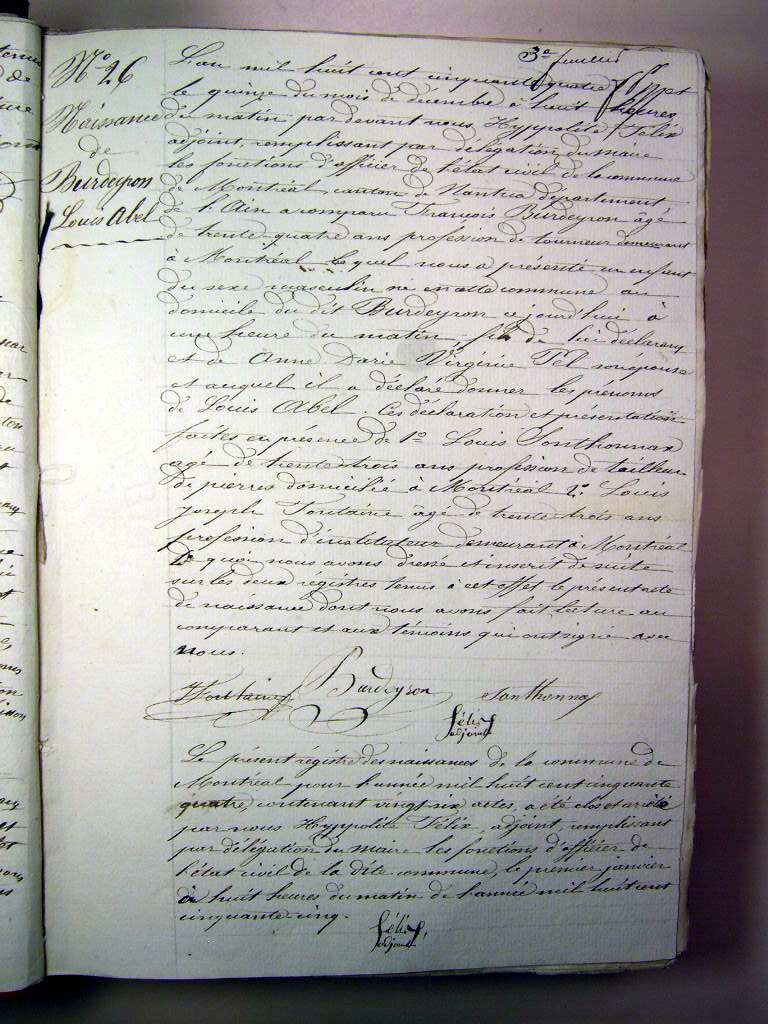 3e feuillet
No 26
Naissance
de
Burdeyron
Louis Abel
L'an mil huit cent cinquante quatre et
le quinze du mois de décembre à huit heures
du matin par devant nous Hyppolite Félix
adjoint, remplissant par délégation du maire
les fonctions d'officier de l'état civil de la commune
de Montréal, canton de Nantua département
de l'Ain a comparu François Burdeyron âgé
de trente quatre ans profession de tourneur demeurant
à Montréal lequel nous a présenté un enfant
du sexe masculin né en cette commune au
domicile du dit Burdeyron ce jourd'hui à
une heure du matin fils de lui déclarant
et de Anne Marie Virginie Tel son épouse
et auquel il a déclaré donner les prénoms
de Louis Abel. Ces déclaration et présentation
faites en présence de 1o Louis Sonthonnax
agé de trente trois ans profession de tailleur
de pierres domicilié à Montréal 2o Louis
Joseph Fontaine âgé de trente trois ans
profession d'instituteur demeurant à Montréal
De quoi nous avons dressé et inscrit de suite
sur les deux régistres tenus à cet effet le présent acte
de naissance dont nous avons fait lecture au
comparant et aux témoins qui ont signé avec
nous.
Fontaine Burdeyron Sonthonnax
Félix
adjoint
Le présent régistre des naissances de la commune de
Montréal pour l'année mil huit cent cinquante
quatre, contenant vingt-six actes, a été clos et arrêté
par nous Hyppolite Félix, adjoint, remplissant
par délégation du maire les fonctions d'officier de
l'état civil de la dite commune, le premier janvier
à huit heures du matin de l'année mil huit cent
cinquante cinq.
Félix
adjoint